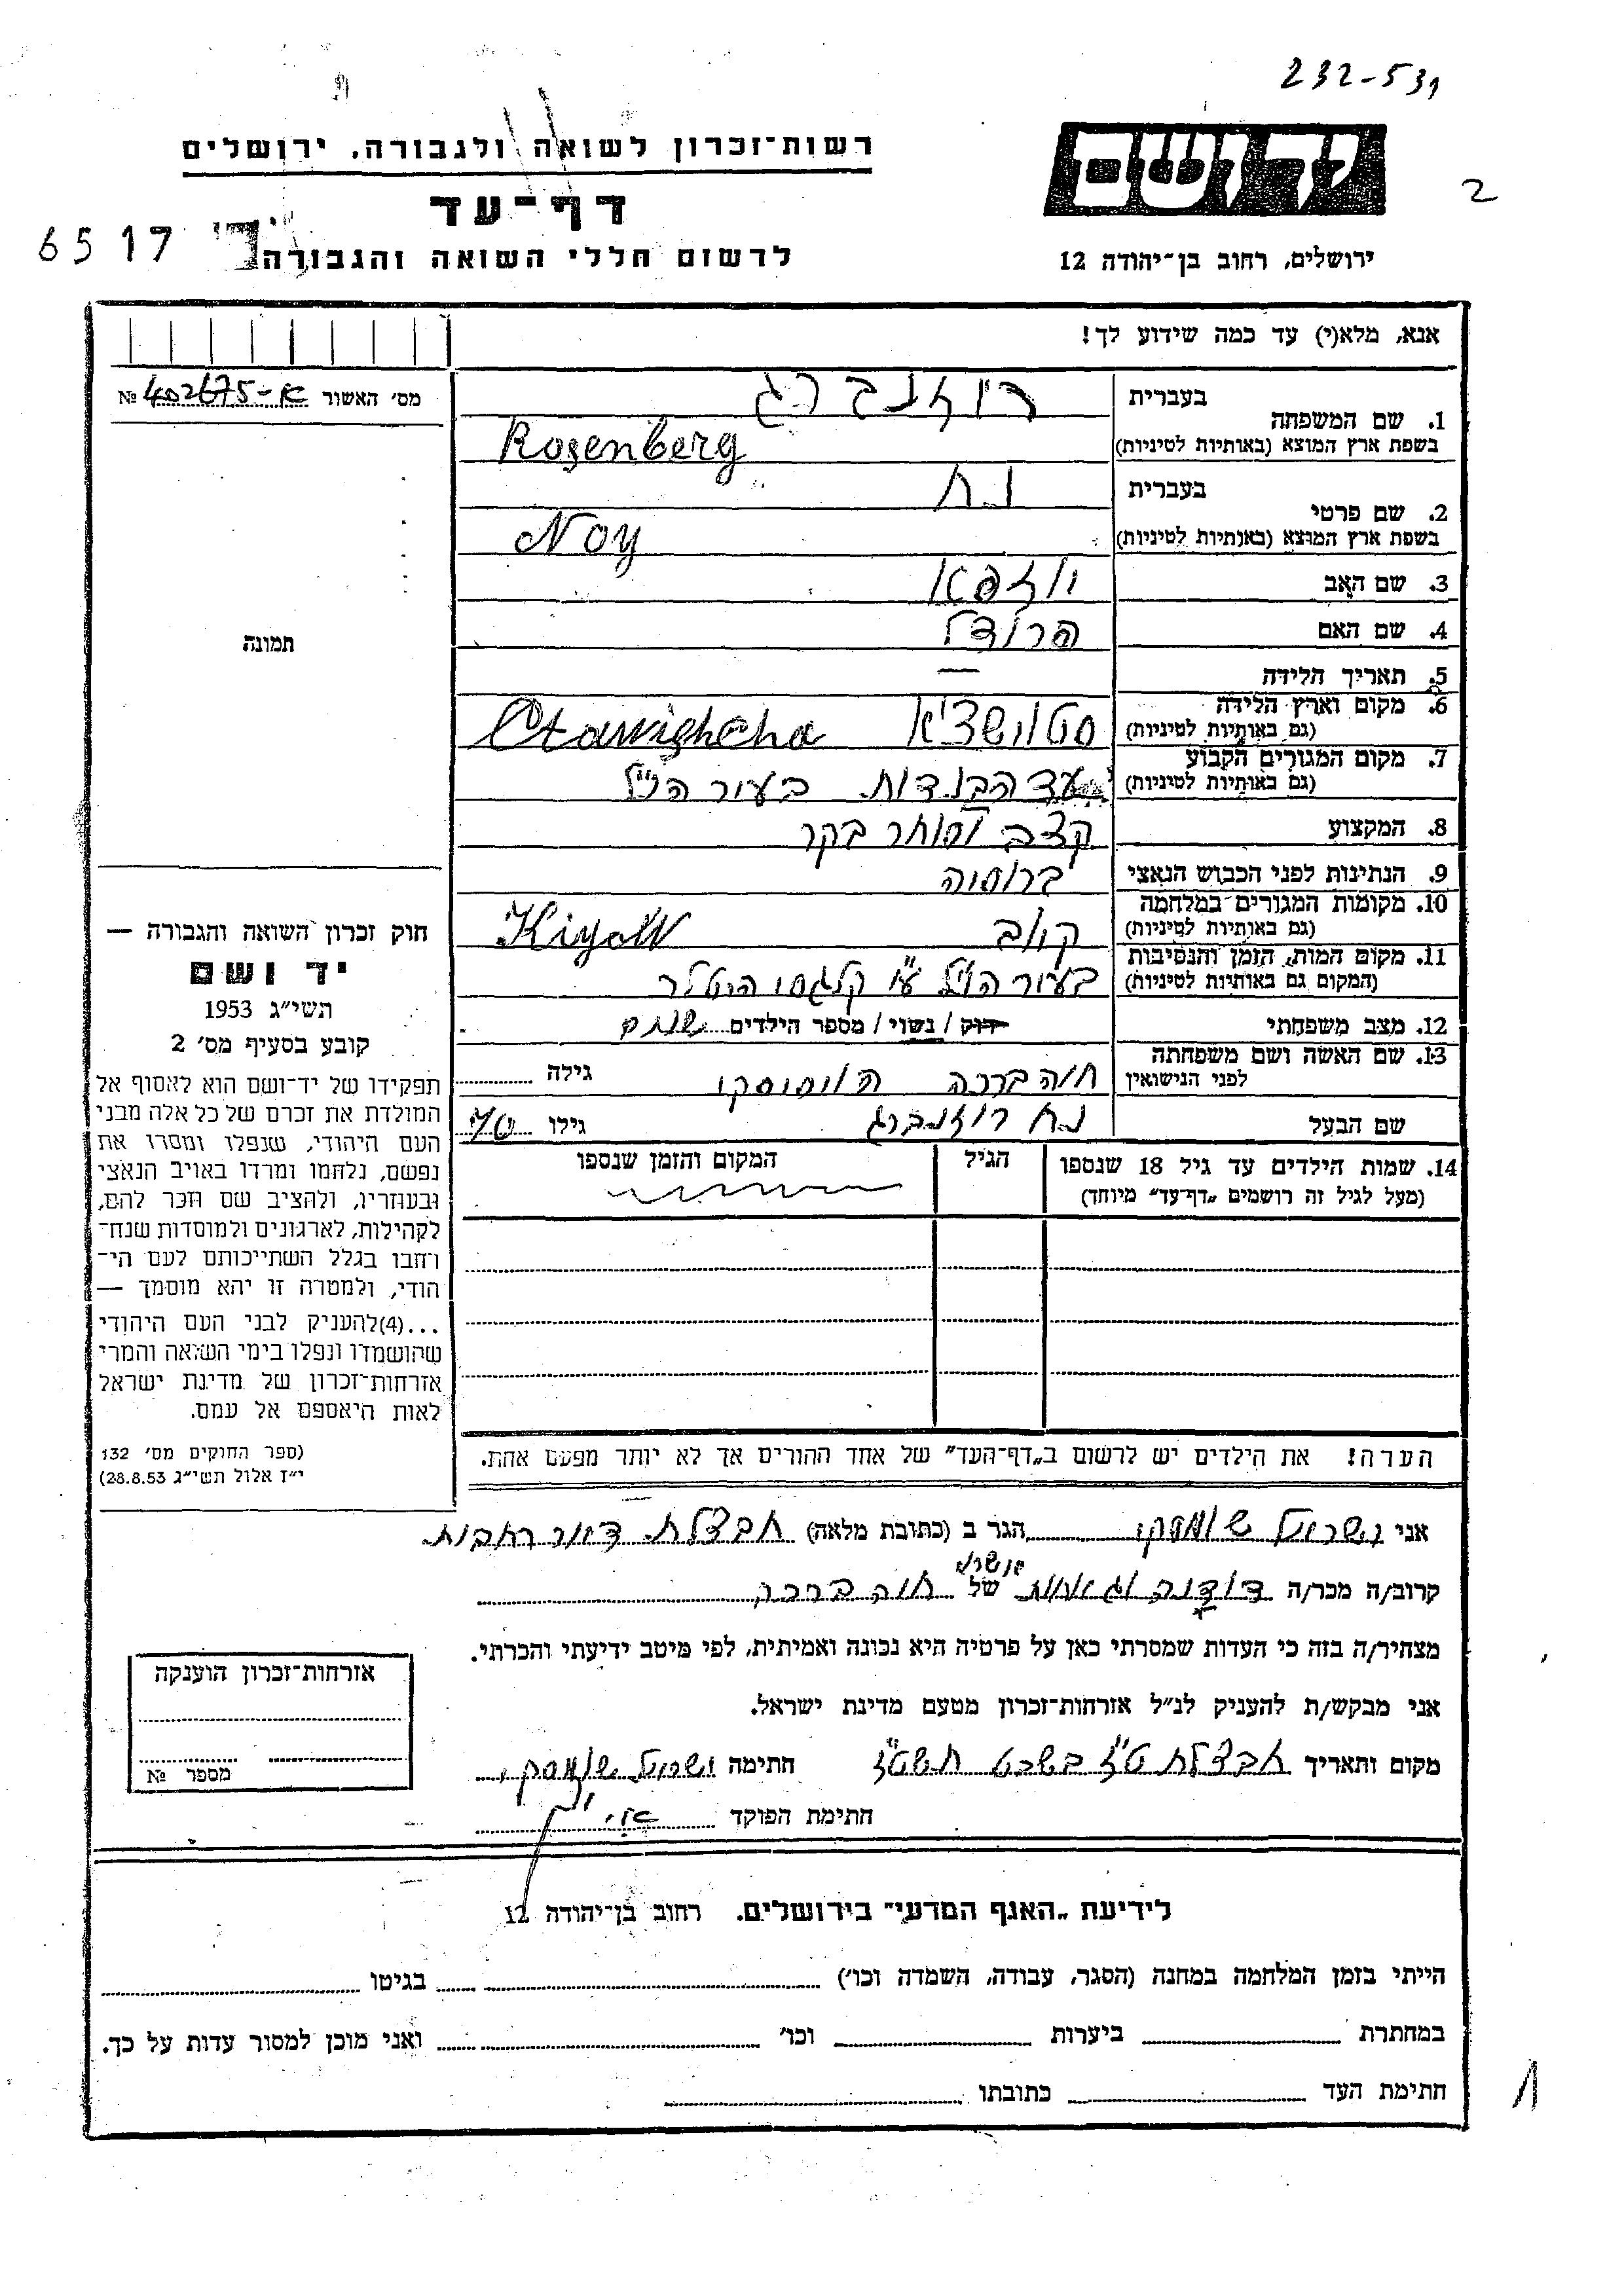 232-531
רשות־זכרון לשואה ולגבורה, ירושלים
ידושם
2
דף־עד
6517
לרשום חללי השואה והגבורה
ירושלים, רחוב בן־יהודה 12
אנא, מלא(י) עד כמה שידוע לך!
מס׳ האשור № 402675-א
1. שם המשפחה בעברית רוזנברג
בשפת ארץ המוצא (באותיות לטיניות) Rosenberg
2. שם פרטי בעברית נח
בשפת ארץ המוצא (באותיות לטיניות) Noy
3. שם האב
4. שם האם
5. תאריך הלידה —
6. מקום וארץ הלידה
(גם באותיות לטיניות)
7. מקום המגורים הקבוע בעיר הנ״ל
(גם באותיות לטיניות)
8. המקצוע קצב וסוחר בקר
9. הנתינות לפני הכבוש הנאצי ברוסיה
10. מקומות המגורים במלחמה קיוב Kiyow
(גם באותיות לטיניות)
11. מקום המות, הזמן והנסיבות בעיר הנ״ל ע״י קלגסי היטלר
(המקום גם באותיות לטיניות)
12. מצב משפחתי רוק / נשוי / מספר הילדים
13. שם האשה ושם משפחתה חוה ברכה גילה
לפני הנישואין
שם הבעל נח רוזנברג גילו 70
14. שמות הילדים עד גיל 18 שנספו הגיל המקום והזמן שנספו
(מעל לגיל זה רושמים „דף־עד״ מיוחד)
הערה! את הילדים יש לרשום ב„דף־העד״ של אחד ההורים אך לא יותר מפעם אחת.
תמונה
חוק זכרון השואה והגבורה —
יד ושם
תשי״ג 1953
קובע בסעיף מס׳ 2
תפקידו של יד־ושם הוא לאסוף אל
המולדת את זכרם של כל אלה מבני
העם היהודי, שנפלו ומסרו את
נפשם, נלחמו ומרדו באויב הנאצי
ובעוזריו, ולהציב שם וזכר להם,
לקהילות, לארגונים ולמוסדות שנח־
רחבו בגלל השתייכותם לעם הי־
הודי, ולמטרה זו יהא מוסמך —
...(4)להעניק לבני העם היהודי
שהושמדו ונפלו בימי השואה והמרי
אזרחות־זכרון של מדינת ישראל
לאות היאספם אל עמם.
(ספר החוקים מס׳ 132
י״ז אלול תשי״ג 28.8.53)
אני הגר ב (כתובת מלאה) חבצלת
קרוב/ה מכר/ה של חוה ברכה
מצהיר/ה בזה כי העדות שמסרתי כאן על פרטיה היא נכונה ואמיתית, לפי מיטב ידיעתי והכרתי.
אני מבקש/ת להעניק לנ״ל אזרחות־זכרון מטעם מדינת ישראל.
מקום ותאריך חבצלת ט״ז בשבט תשט״ז חתימה
חתימת הפוקד
אזרחות־זכרון הוענקה
מספר №
לידיעת „האגף המדעי״ בירושלים. רחוב בן־יהודה 12
הייתי בזמן המלחמה במחנה (הסגר, עבודה, השמדה וכו׳) בגיטו
במחתרת ביערות וכו׳ ואני מוכן למסור עדות על כך.
חתימת העד כתובתו
1